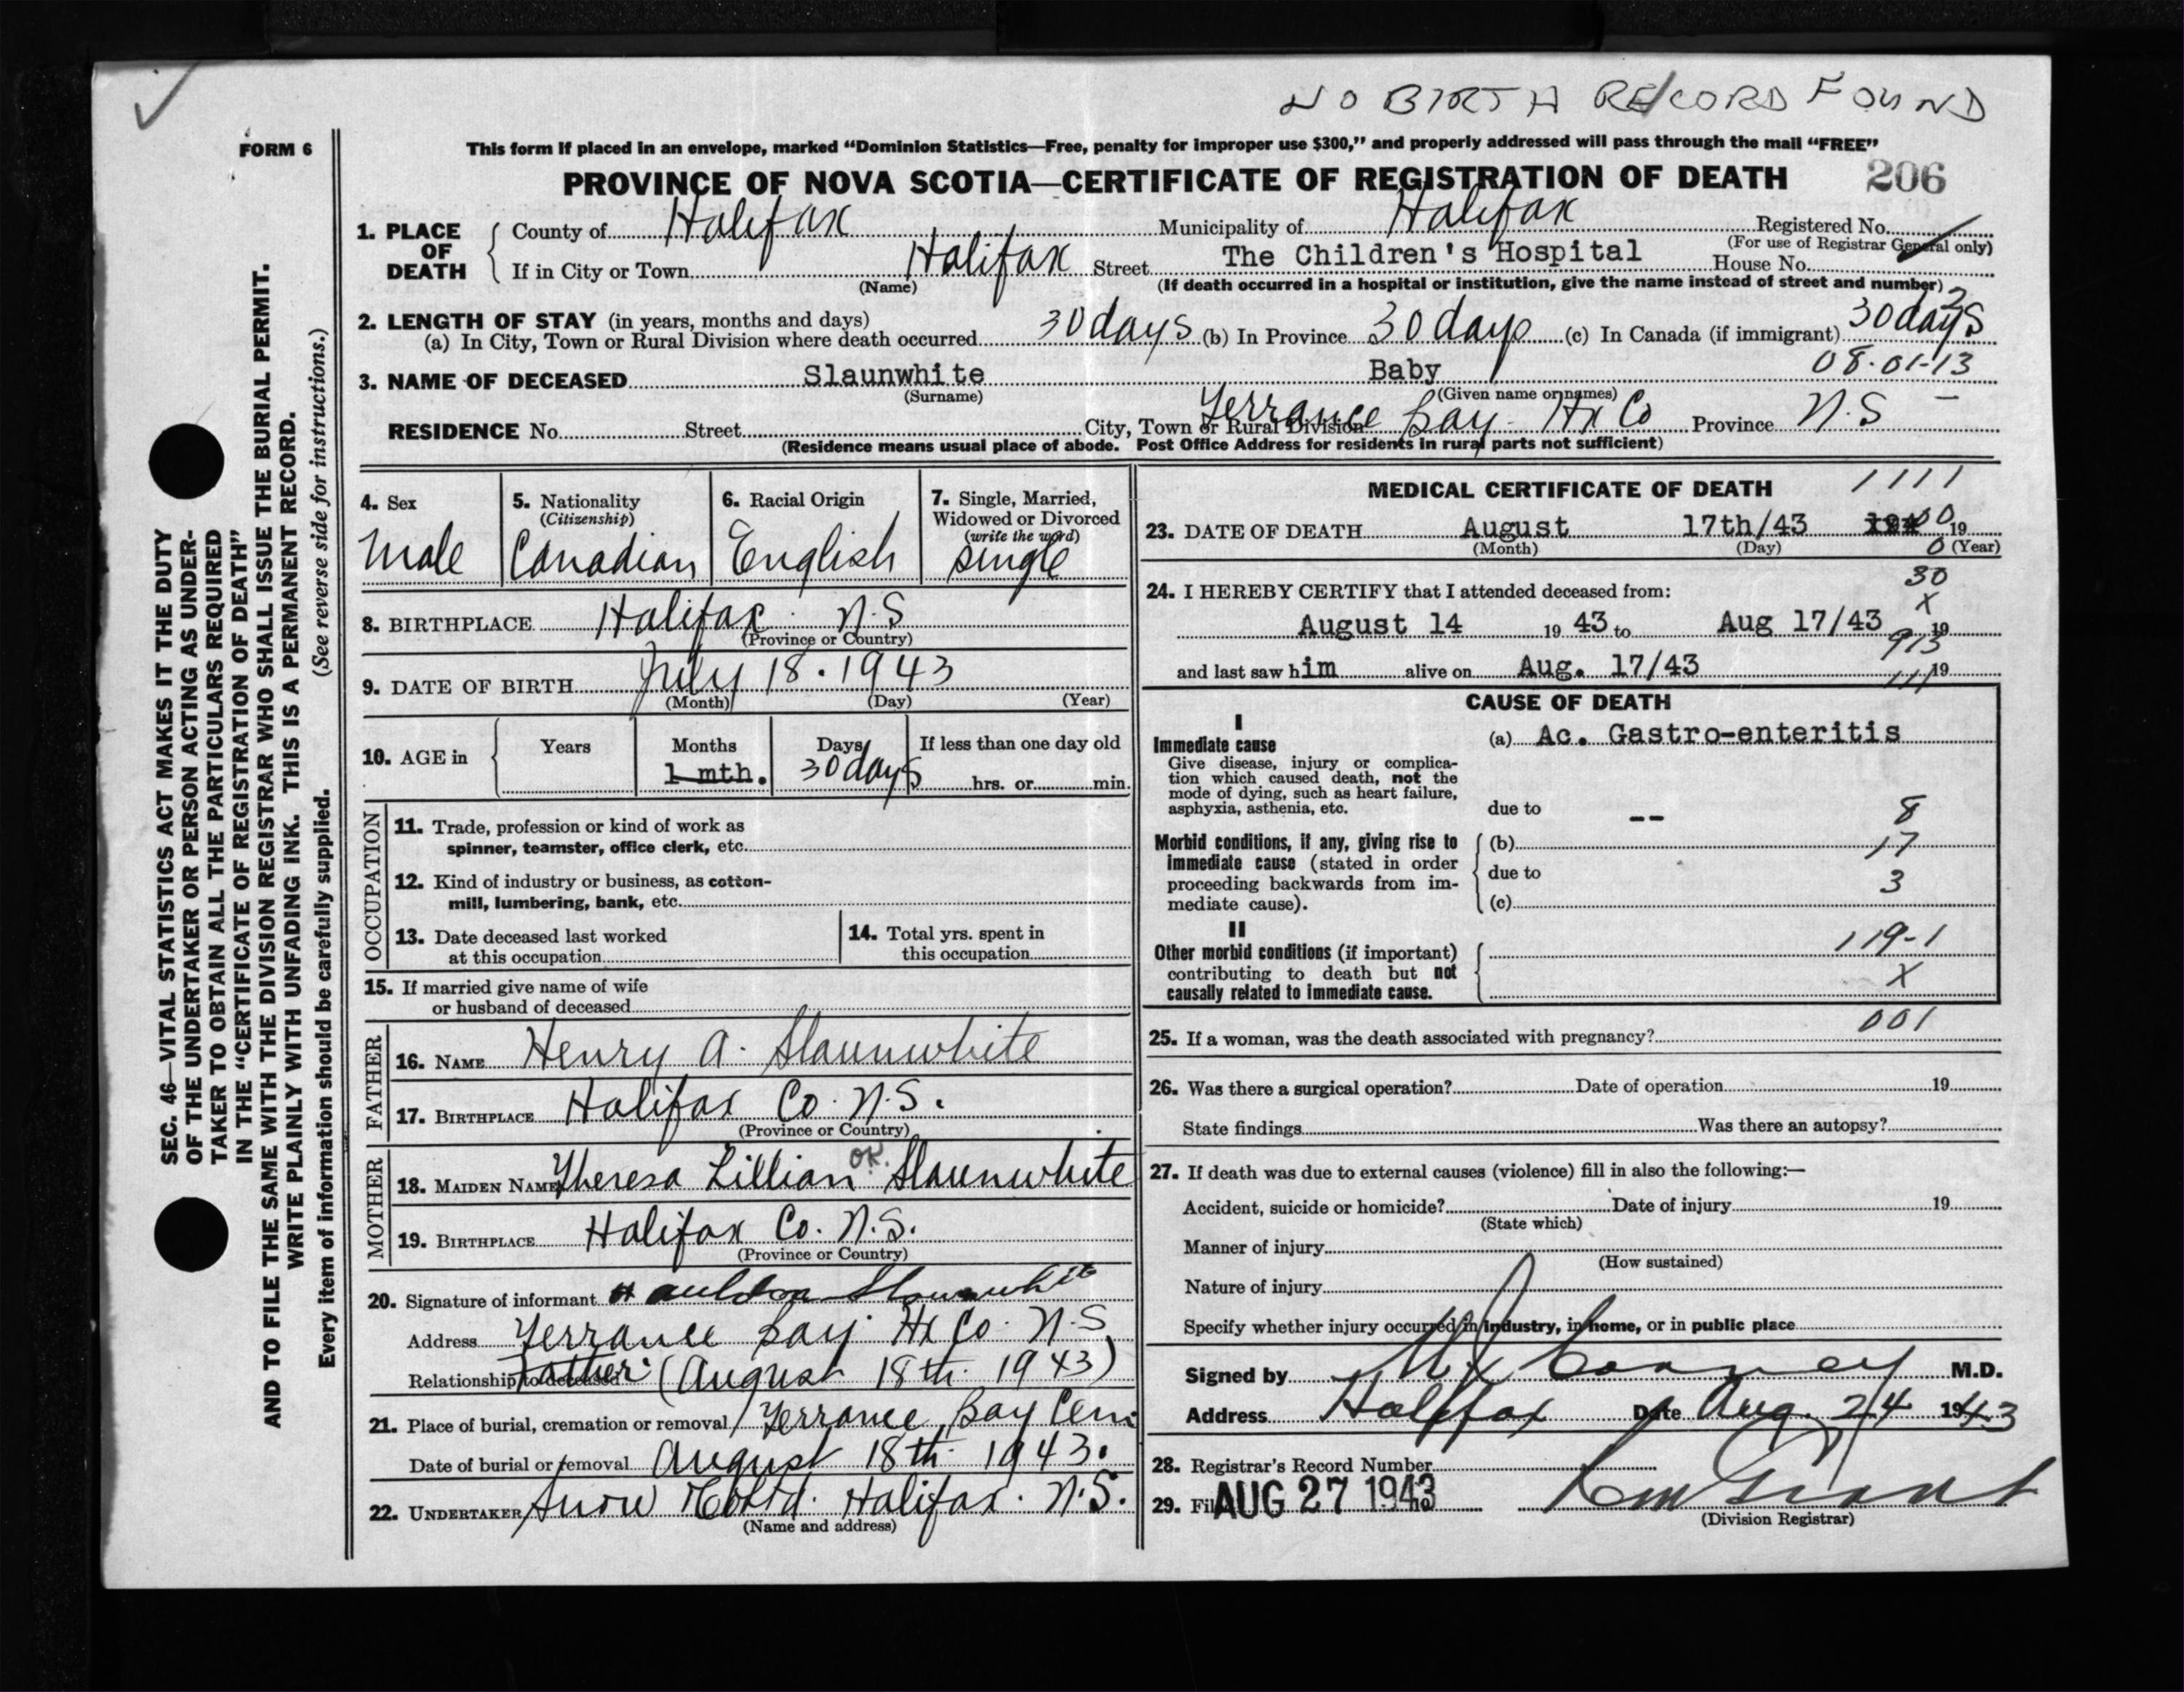 NO BIRTH RECORD FOUND
FORM 6
This form if placed in an envelope, marked “Dominion Statistics—Free, penalty for improper use $300,” and properly addressed will pass through the mail “FREE”
PROVINCE OF NOVA SCOTIA—CERTIFICATE OF REGISTRATION OF DEATH 206
1. PLACE OF DEATH
County of Halifax Municipality of Halifax Registered No.
(For use of Registrar General only)
If in City or Town Halifax Street The Children's Hospital House No.
(Name) (If death occurred in a hospital or institution, give the name instead of street and number)
2. LENGTH OF STAY (in years, months and days)
(a) In City, Town or Rural Division where death occurred 30 days (b) In Province 30 days (c) In Canada (if immigrant) 30 days
08-01-13
3. NAME OF DECEASED Slaunwhite Baby
(Surname) (Given name or names)
RESIDENCE No. Street City, Town or Rural Division Terrance Bay - Hx Co Province N.S
(Residence means usual place of abode. Post Office Address for residents in rural parts not sufficient)
4. Sex
Male
5. Nationality
(Citizenship)
Canadian
6. Racial Origin
English
7. Single, Married,
Widowed or Divorced
(write the word)
single
8. BIRTHPLACE Halifax. N.S
(Province or Country)
9. DATE OF BIRTH July 18. 1943
(Month) (Day) (Year)
10. AGE in
Years Months Days If less than one day old
1 mth. 30 days hrs. or min.
OCCUPATION
11. Trade, profession or kind of work as
spinner, teamster, office clerk, etc.
12. Kind of industry or business, as cotton-
mill, lumbering, bank, etc.
13. Date deceased last worked
at this occupation
14. Total yrs. spent in
this occupation
15. If married give name of wife
or husband of deceased
FATHER
16. NAME Henry A. Slaunwhite
17. BIRTHPLACE Halifax Co. N.S.
(Province or Country)
MOTHER
OK.
18. MAIDEN NAME Theresa Lillian Slaunwhite
19. BIRTHPLACE Halifax Co. N.S.
(Province or Country)
20. Signature of informant Slaunwhite
Address Terrance Bay Hx Co. N.S
Relationship to deceased Father (August 18th. 1943)
21. Place of burial, cremation or removal Terrance Bay Cem
Date of burial or removal August 18th. 1943.
22. UNDERTAKER Snow & Co Ltd. Halifax. N.S.
(Name and address)
MEDICAL CERTIFICATE OF DEATH
1111
23. DATE OF DEATH August 17th/43 19
(Month) (Day) (Year)
0
30
X
24. I HEREBY CERTIFY that I attended deceased from:
August 14 19 43 to Aug 17/43 19
913
and last saw him alive on Aug. 17/43 19
111
CAUSE OF DEATH
I
Immediate cause
Give disease, injury or complica-
tion which caused death, not the
mode of dying, such as heart failure,
asphyxia, asthenia, etc.
(a) Ac. Gastro-enteritis
due to --
8
Morbid conditions, if any, giving rise to
immediate cause (stated in order
proceeding backwards from im-
mediate cause).
(b) 17
due to
3
(c)
II
Other morbid conditions (if important)
contributing to death but not
causally related to immediate cause.
119-1
X
001
25. If a woman, was the death associated with pregnancy?
26. Was there a surgical operation? Date of operation 19
State findings Was there an autopsy?
27. If death was due to external causes (violence) fill in also the following:—
Accident, suicide or homicide? Date of injury 19
(State which)
Manner of injury
(How sustained)
Nature of injury
Specify whether injury occurred in industry, in home, or in public place
Signed by M.D.
Address Halifax Date Aug. 24 1943
28. Registrar's Record Number
29. Filed AUG 27 1943
(Division Registrar)
SEC. 46—VITAL STATISTICS ACT MAKES IT THE DUTY
OF THE UNDERTAKER OR PERSON ACTING AS UNDER-
TAKER TO OBTAIN ALL THE PARTICULARS REQUIRED
IN THE “CERTIFICATE OF REGISTRATION OF DEATH”
AND TO FILE THE SAME WITH THE DIVISION REGISTRAR WHO SHALL ISSUE THE BURIAL PERMIT.
WRITE PLAINLY WITH UNFADING INK. THIS IS A PERMANENT RECORD.
Every item of information should be carefully supplied. (See reverse side for instructions.)